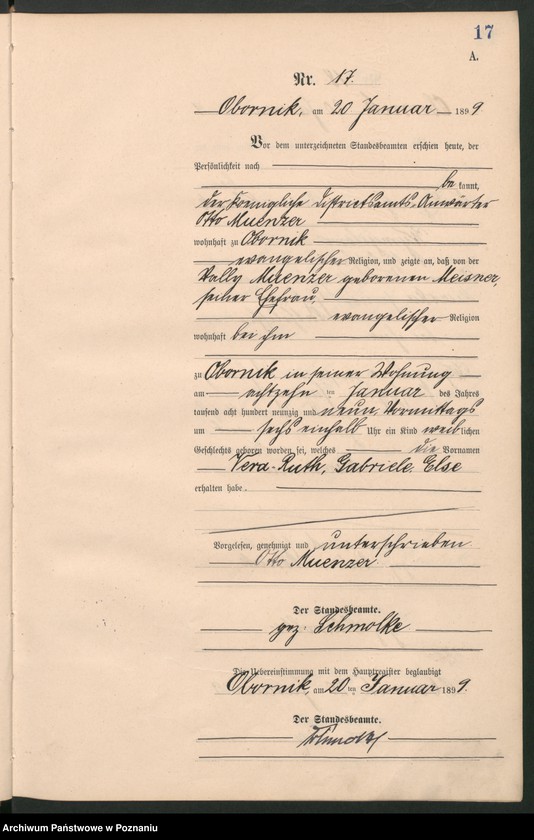 17
A.
Nr. 17.
Obornik, am 20 Januar 1899
Vor dem unterzeichneten Standesbeamten erschien heute, der
Persönlichkeit nach
bekannt,
der Koenigliche Districtsamts-Anwärter
Otto Muenzer
wohnhaft zu Obornik
evangelischer Religion, und zeigte an, daß von der
Vally Muenzer geborenen Meisner,
seiner Ehefrau,
evangelischer Religion
wohnhaft bei ihm
zu Obornik in seiner Wohnung
am achtzehn ten Januar des Jahres
tausend acht hundert neunzig und neun, Vormittags
um sechs einhalb Uhr ein Kind weiblichen
Geschlechts geboren worden sei, welches die Vornamen
Vera Ruth, Gabriele, Else
erhalten habe.
Vorgelesen, genehmigt und unterschrieben
Otto Muenzer
Der Standesbeamte.
gez. Schmolke
Die Uebereinstimmung mit dem Hauptregister beglaubigt
Obornik, am 20 ten Januar 1899.
Der Standesbeamte.
Schmolke
Archiwum Państwowe w Poznaniu